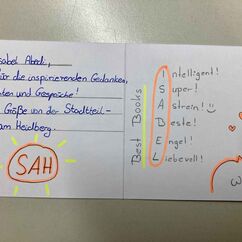 sabel Abedi,
ür die inspirierenden Gedanken,
ten und Gespräche!
Grüße von der Stadtteil-
am Heidberg.
SAH
Best Books
Intelligent!
Super!
Astrein!
Beste!
Engel!
Liebevoll!
W